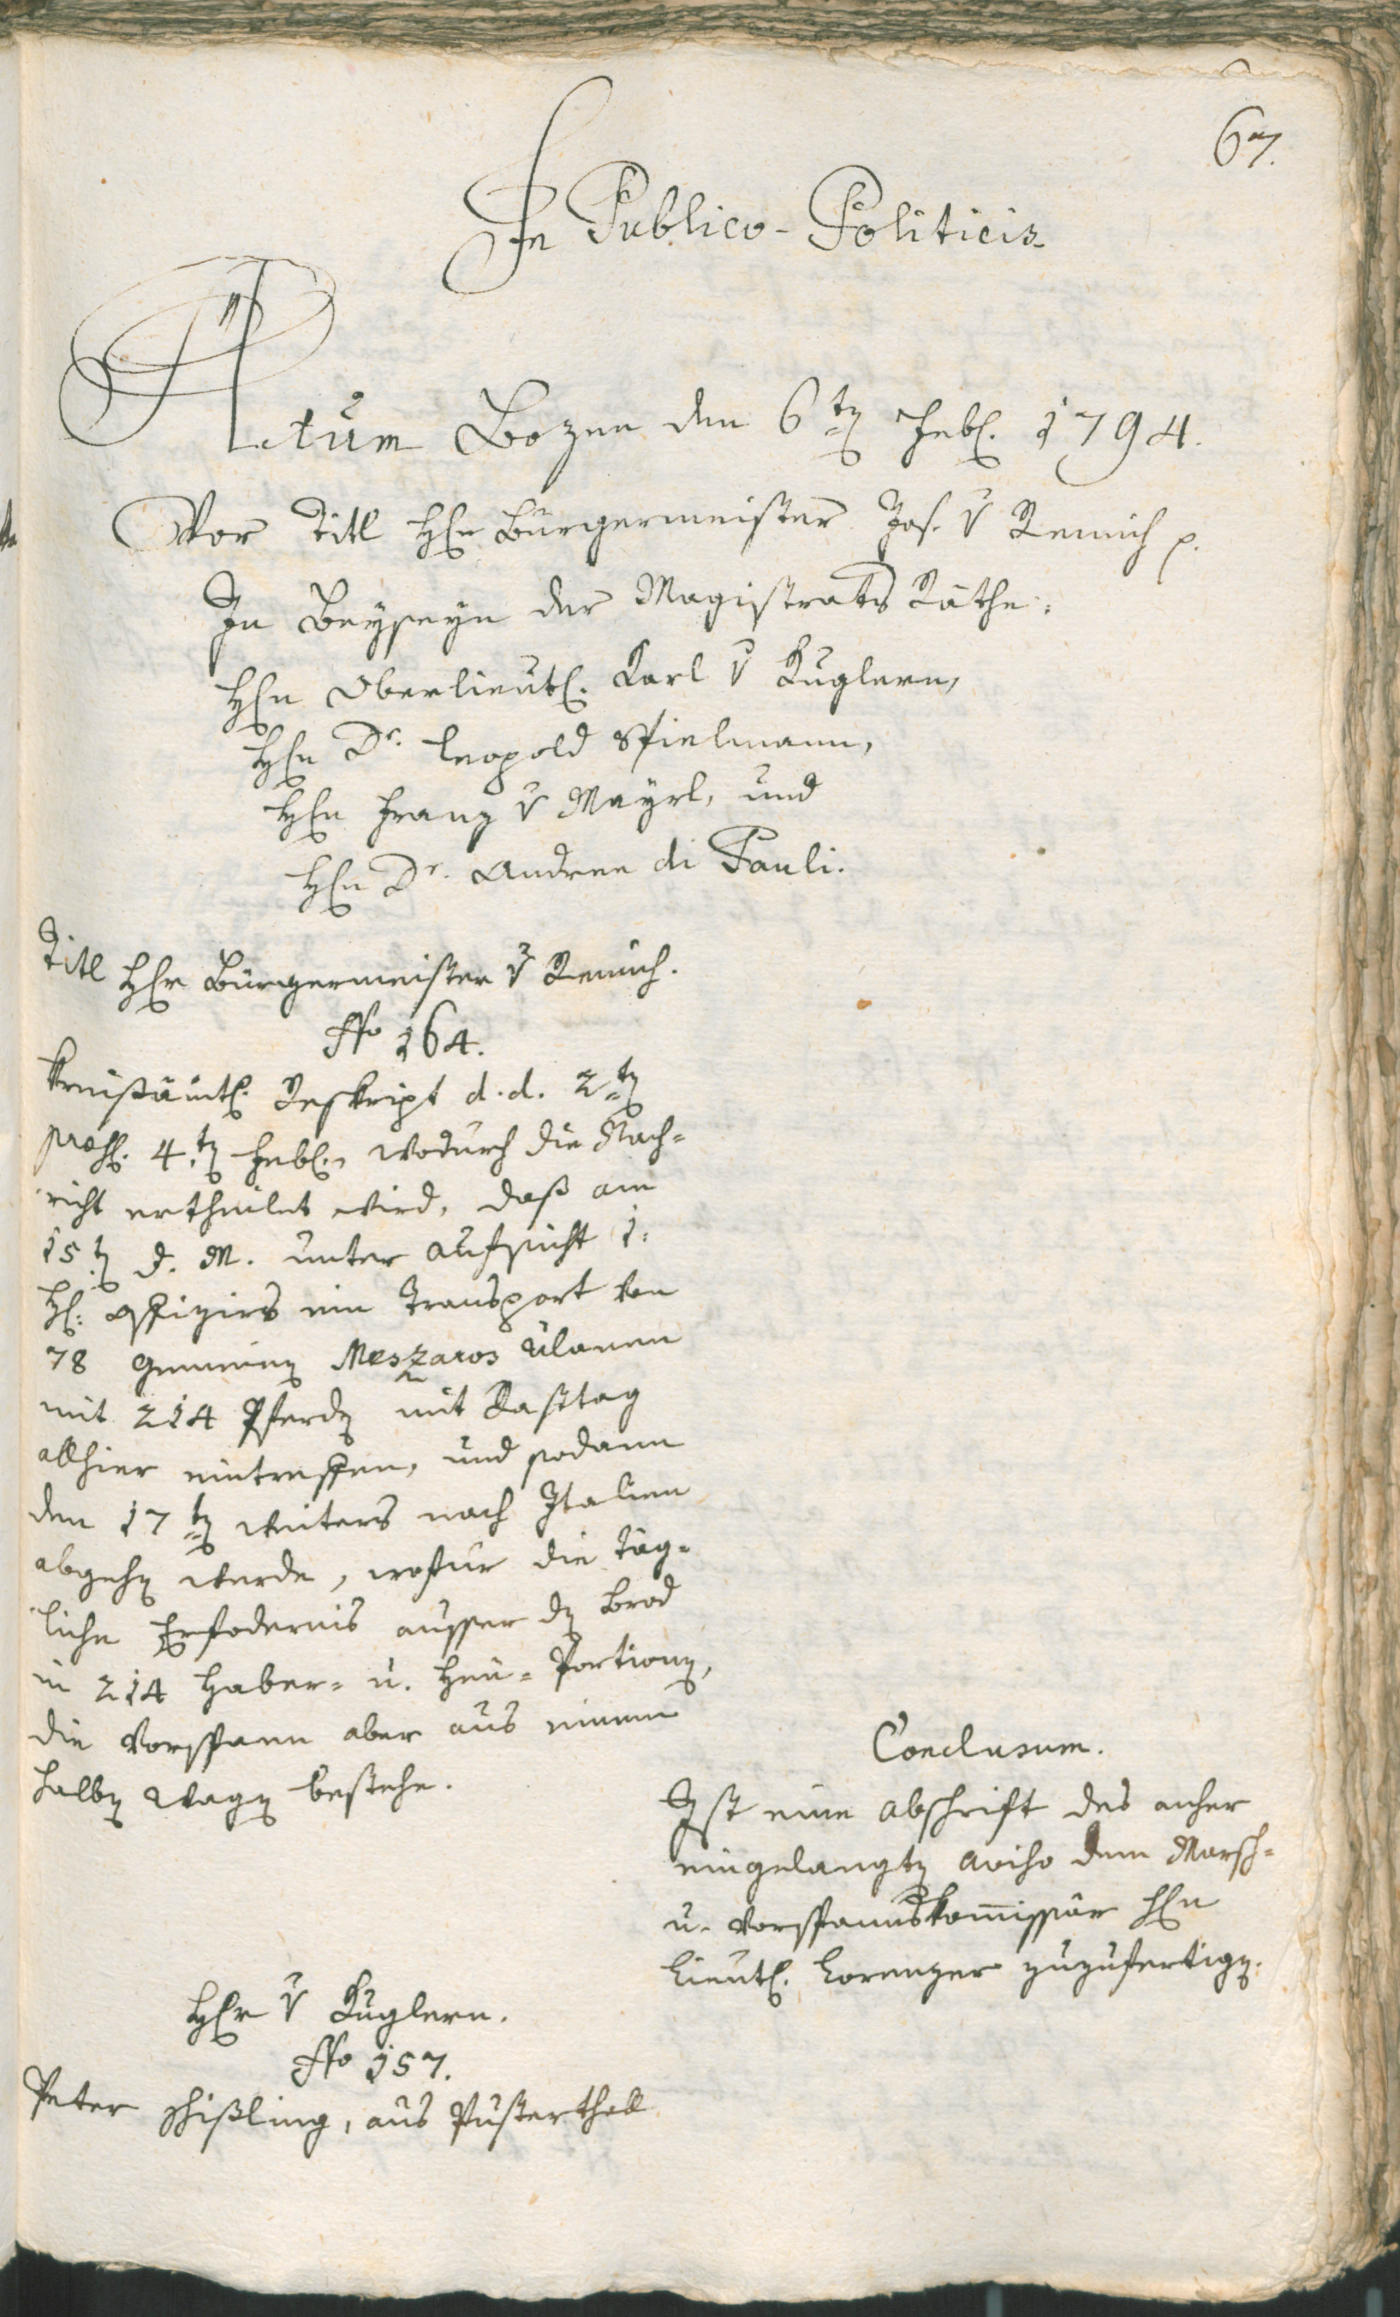 67.
In Publico-Politicis
Actum Bozen den 6ten Febr. 1794.
Vor Titl Hrn Bürgermeister Jos. v Remich p.
In Beyseyn der Magistrats Räthe:
Hrn Oberlieut. Karl v Kuglern,
Hrn Dr. Leopold Spielmann,
Hrn Franz v Mayrl, und
Hrn Dr. Andree di Pauli.
Titl Hr Bürgermeister v Remich.
No 164.
Kreisämtl. Reskript d. d. 2ten
præs. 4ten Febr., wodurch die Nach=
richt ertheilet wird, daß am
15ten d. M. unter Aufsicht 1:
H: Offizirs ein Transport von
78 gemeinen Meszaros Ulanen
mit 214 Pferden mit Rasttag
allhier eintreffen, und sodann
den 17ten weiters nach Italien
abgehen werde, wofür die täg=
liche Erfodernis ausser den Brod
in 214 Haber= u. Heu=Portionen,
die Vorspann aber aus einem
halben Wagen bestehe.
Conclusum.
Ist eine Abschrift des anher
eingelangten Aviso dem Marsch=
u. Vorspannskommissär Hrn
Lieut. Lorenzer zuzufertigen.
Hr v Kuglern.
No 157.
Peter Schißling, aus Pusterthall